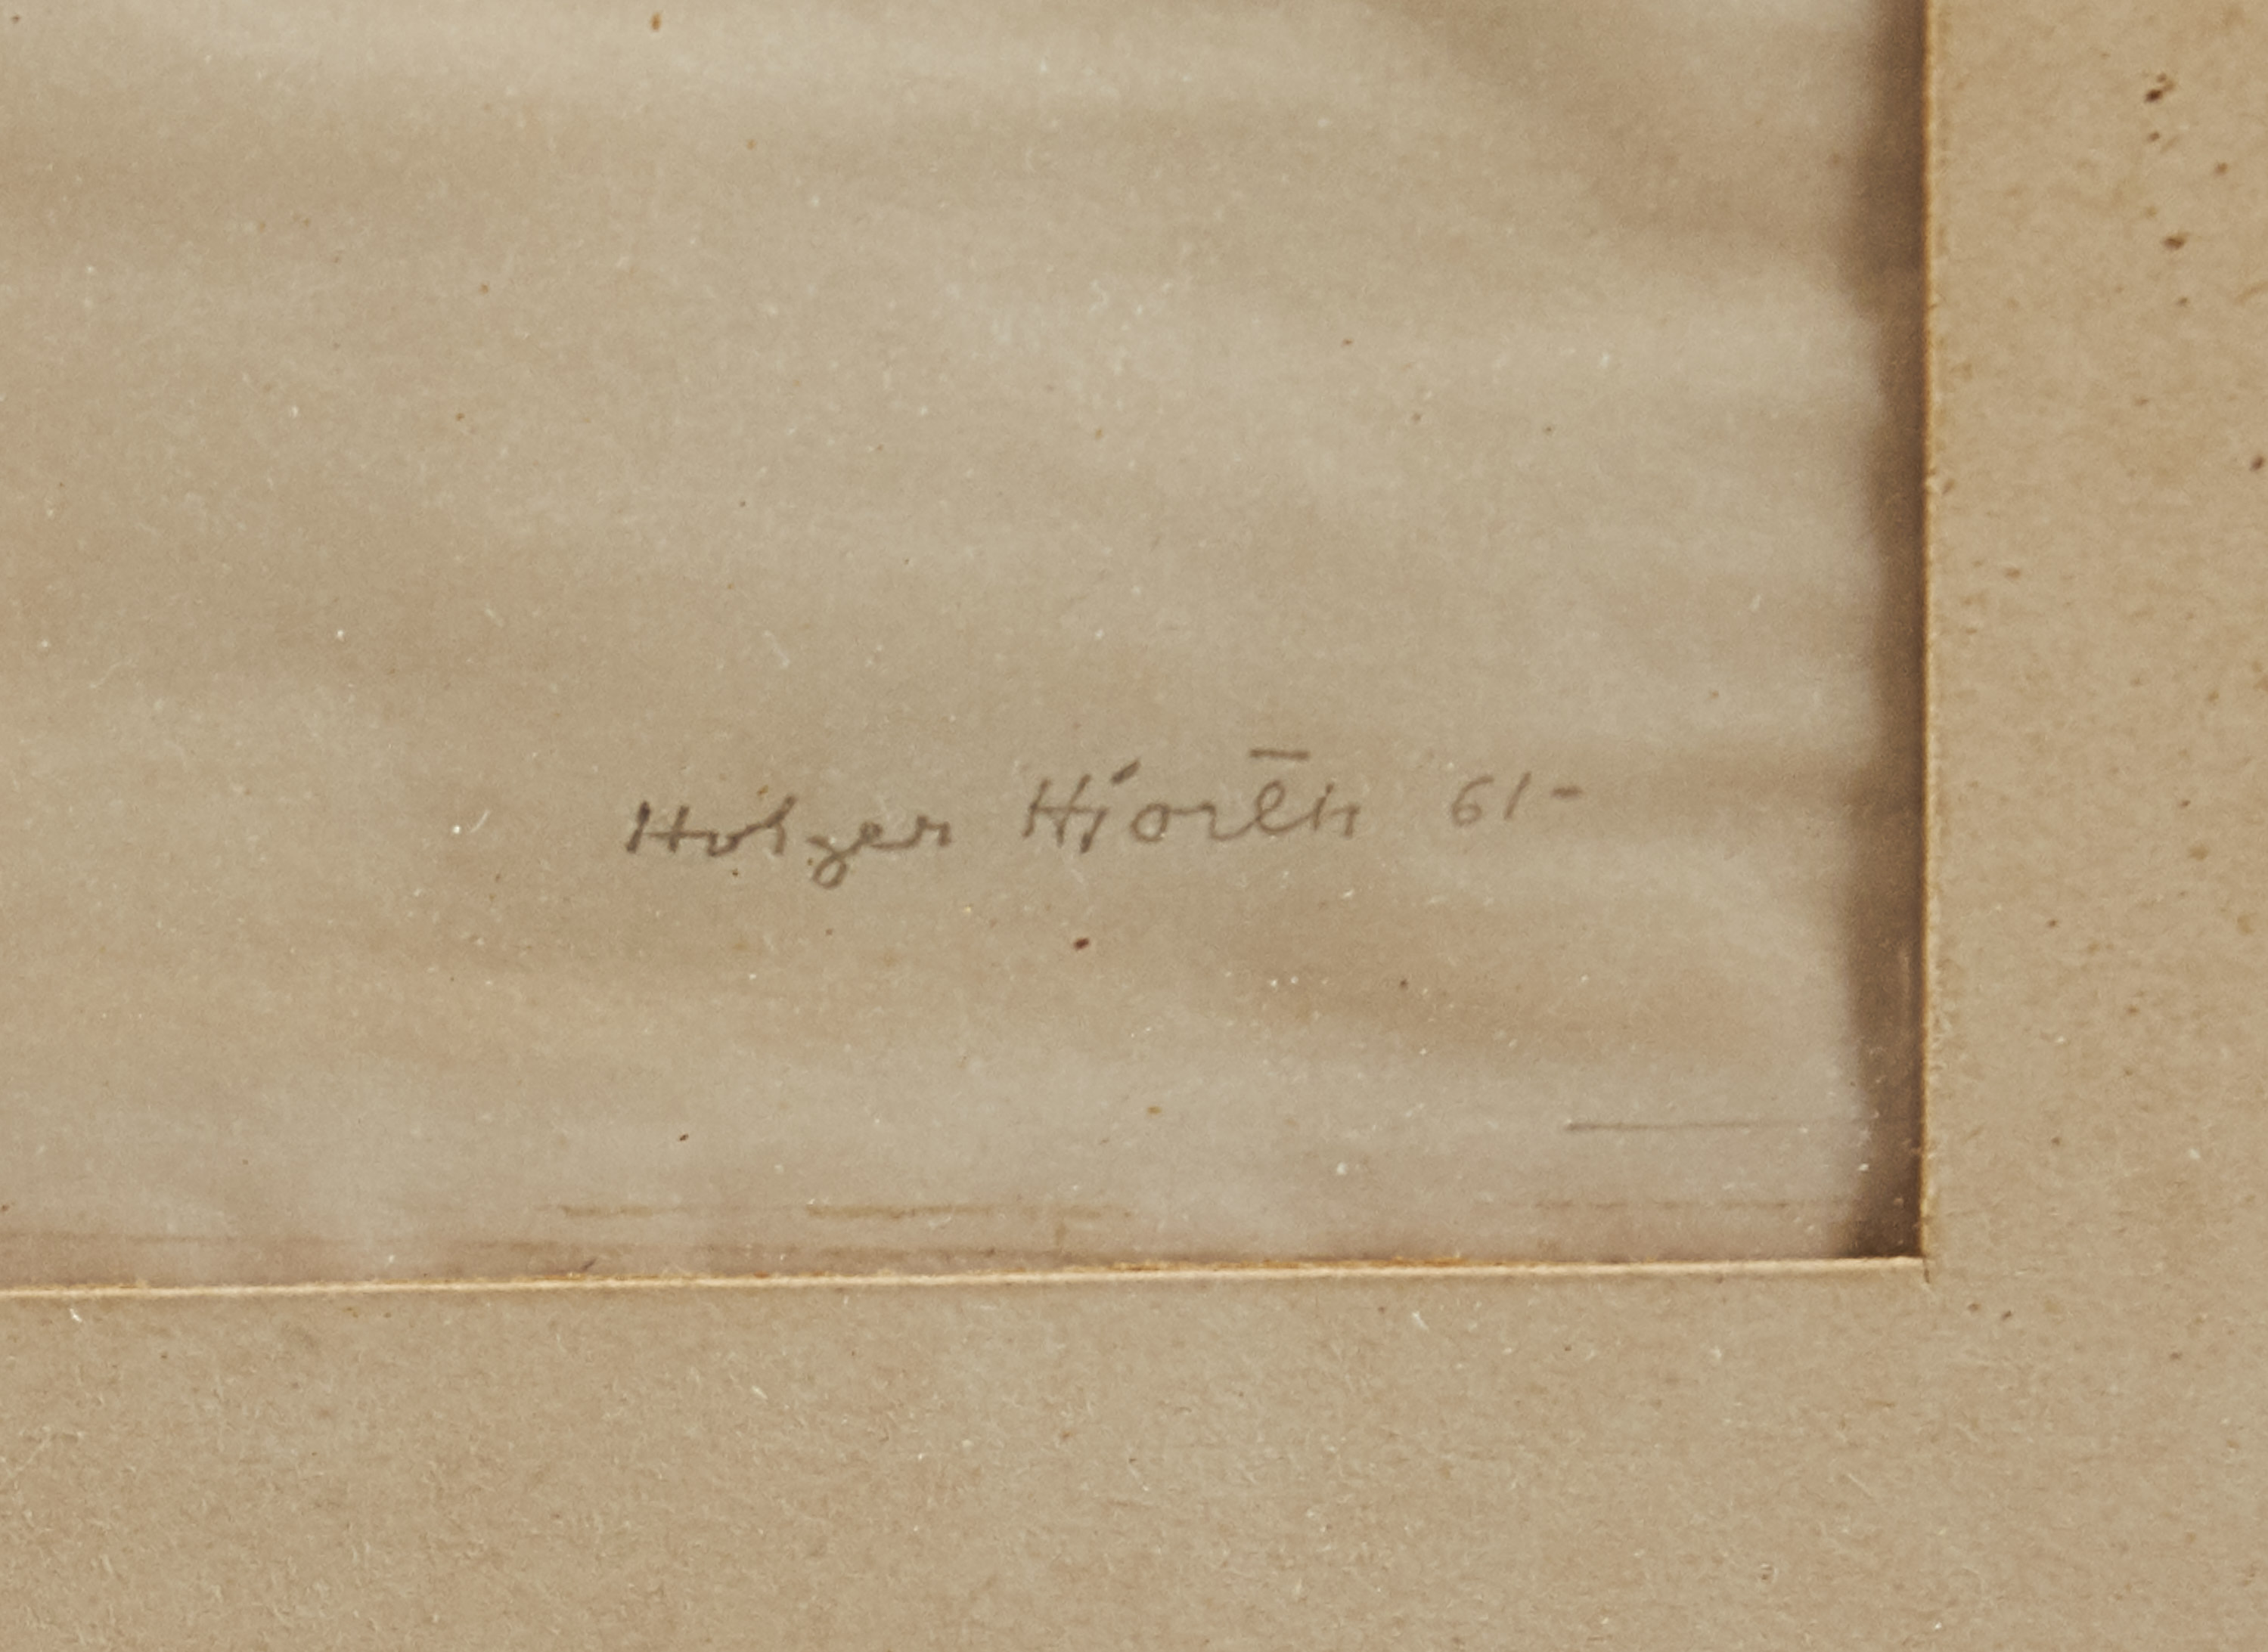 Holger Hjorth 61-